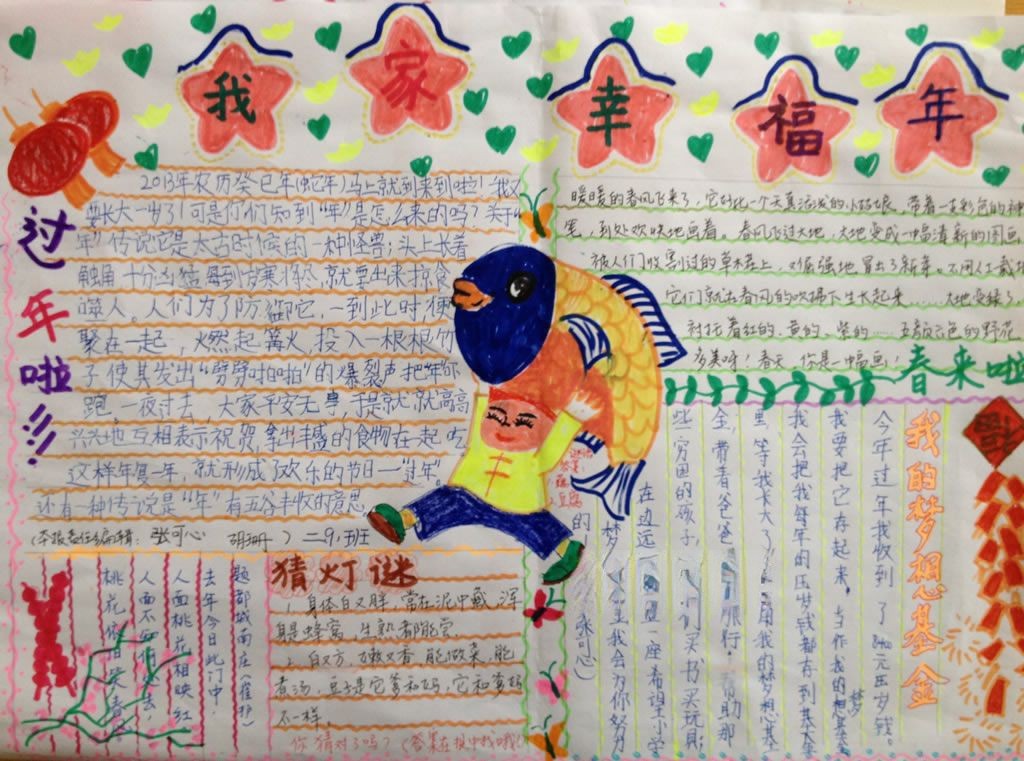 我家幸福年
过年啦!!!
2013年农历癸巳年(蛇年)马上就到来到啦!我又
要长大一岁了!可是你们知到“年”是怎么来的吗?关于“
年”传说它是太古时候的一种怪兽;头上长着
触角十分凶猛每到岁寒将 就要出来掠食
噬人。人们为了防 它,一到此时便
聚在一起,燃起篝火,投入一根根竹
子使其发出“劈劈啪啪”的爆裂声把年
跑一夜过去 大家平安无事,于是就就高高
兴兴地互相表示祝贺,拿出丰盛的食物在一起吃
这样年复一年,就形成了欢乐的节日—“过年”。
还有一种传说是“年”有五谷丰收的意思
(本报责任编辑:张可心 ) 二9班
暖暖的春风飞来了,它好比一个天真活泼的小姑娘,带着一支彩色的神
笔,到处欢快地画着。春风飞过大地,大地变成一幅清新的图画
被人们收割过的草木茬上,又倔强地冒出了新芽。不用人工栽培
它们就沽春风的吹拂下生长起来……大地变绿了,
衬托着红的、黄的、紫的……五颜六色的野花
多美呀!春天,你是一幅画!
春来啦
我的梦想基金
今年过年我收到了 元压岁钱。
我要把它存起来。当作我的梦想基金
我会把我每年的压岁钱都存到基金
里,等我长大了,用我的梦想基
金,带着爸爸 旅行,帮助那
些穷困的孩子, 们买书买玩具;
在边远 一座希望小学
的梦 我会为你努力
张可心
题都城南庄(崔护)
去年今日此门中,
人面桃花相映红
人面不 去,
桃花依旧笑春风
猜灯谜
1. 身体白又胖,常在泥中藏,浑
身是蜂窝,生熟都能尝
2. 白又方,嫩又香,能做菜,能
煮汤,豆子是它爹和妈,它和爹妈
不一样。
你猜对了吗?(答案在报中找哦!)
福